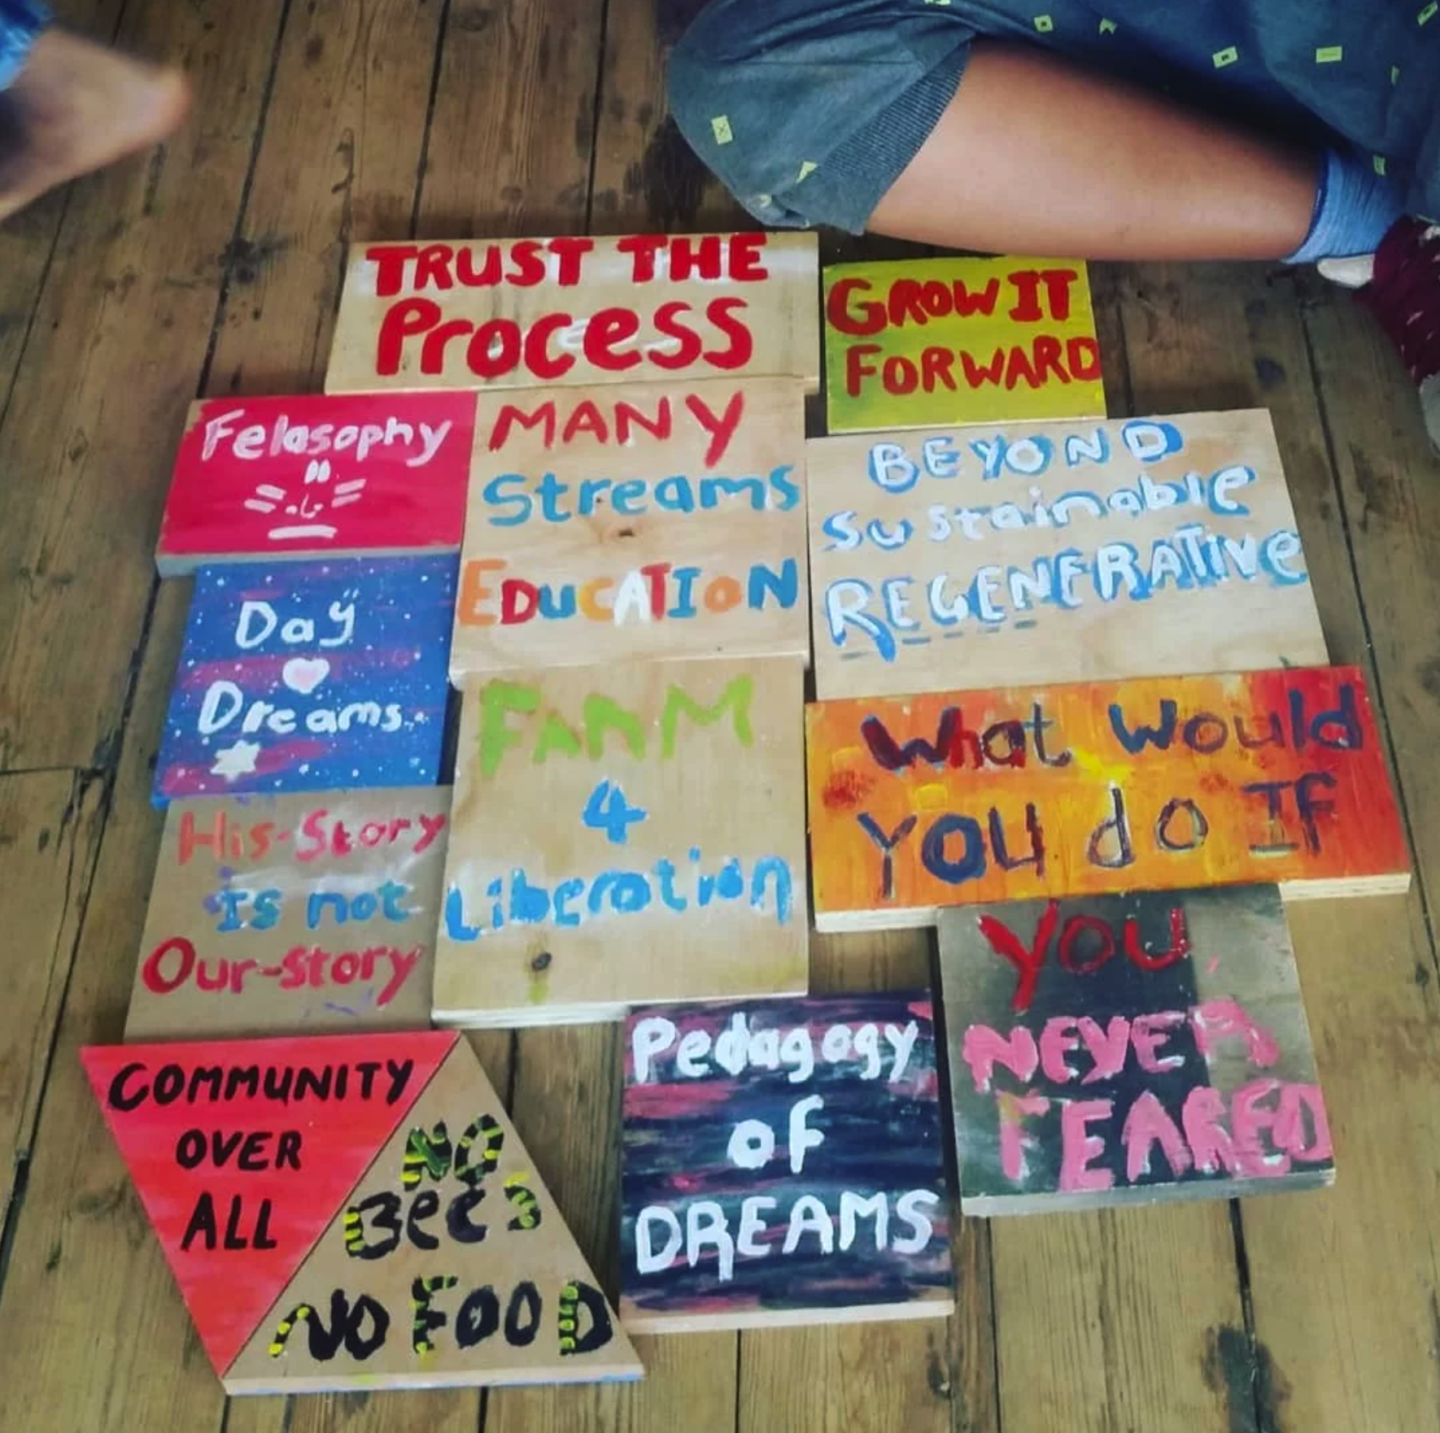 TRUST THE
Process
GROW IT
FORWARD
Felasophy
MANY
Streams
EDUCATION
BEYOND
Sustainable
REGENERATIVE
Day
Dreams.
FARM
4
Liberation
What Would
YOU do IF
YOU
NEVER
FEARED
His-Story
Is not
Our-story
COMMUNITY
OVER
ALL
NO
Bees
NO FOOD
Pedagogy
OF
DREAMS